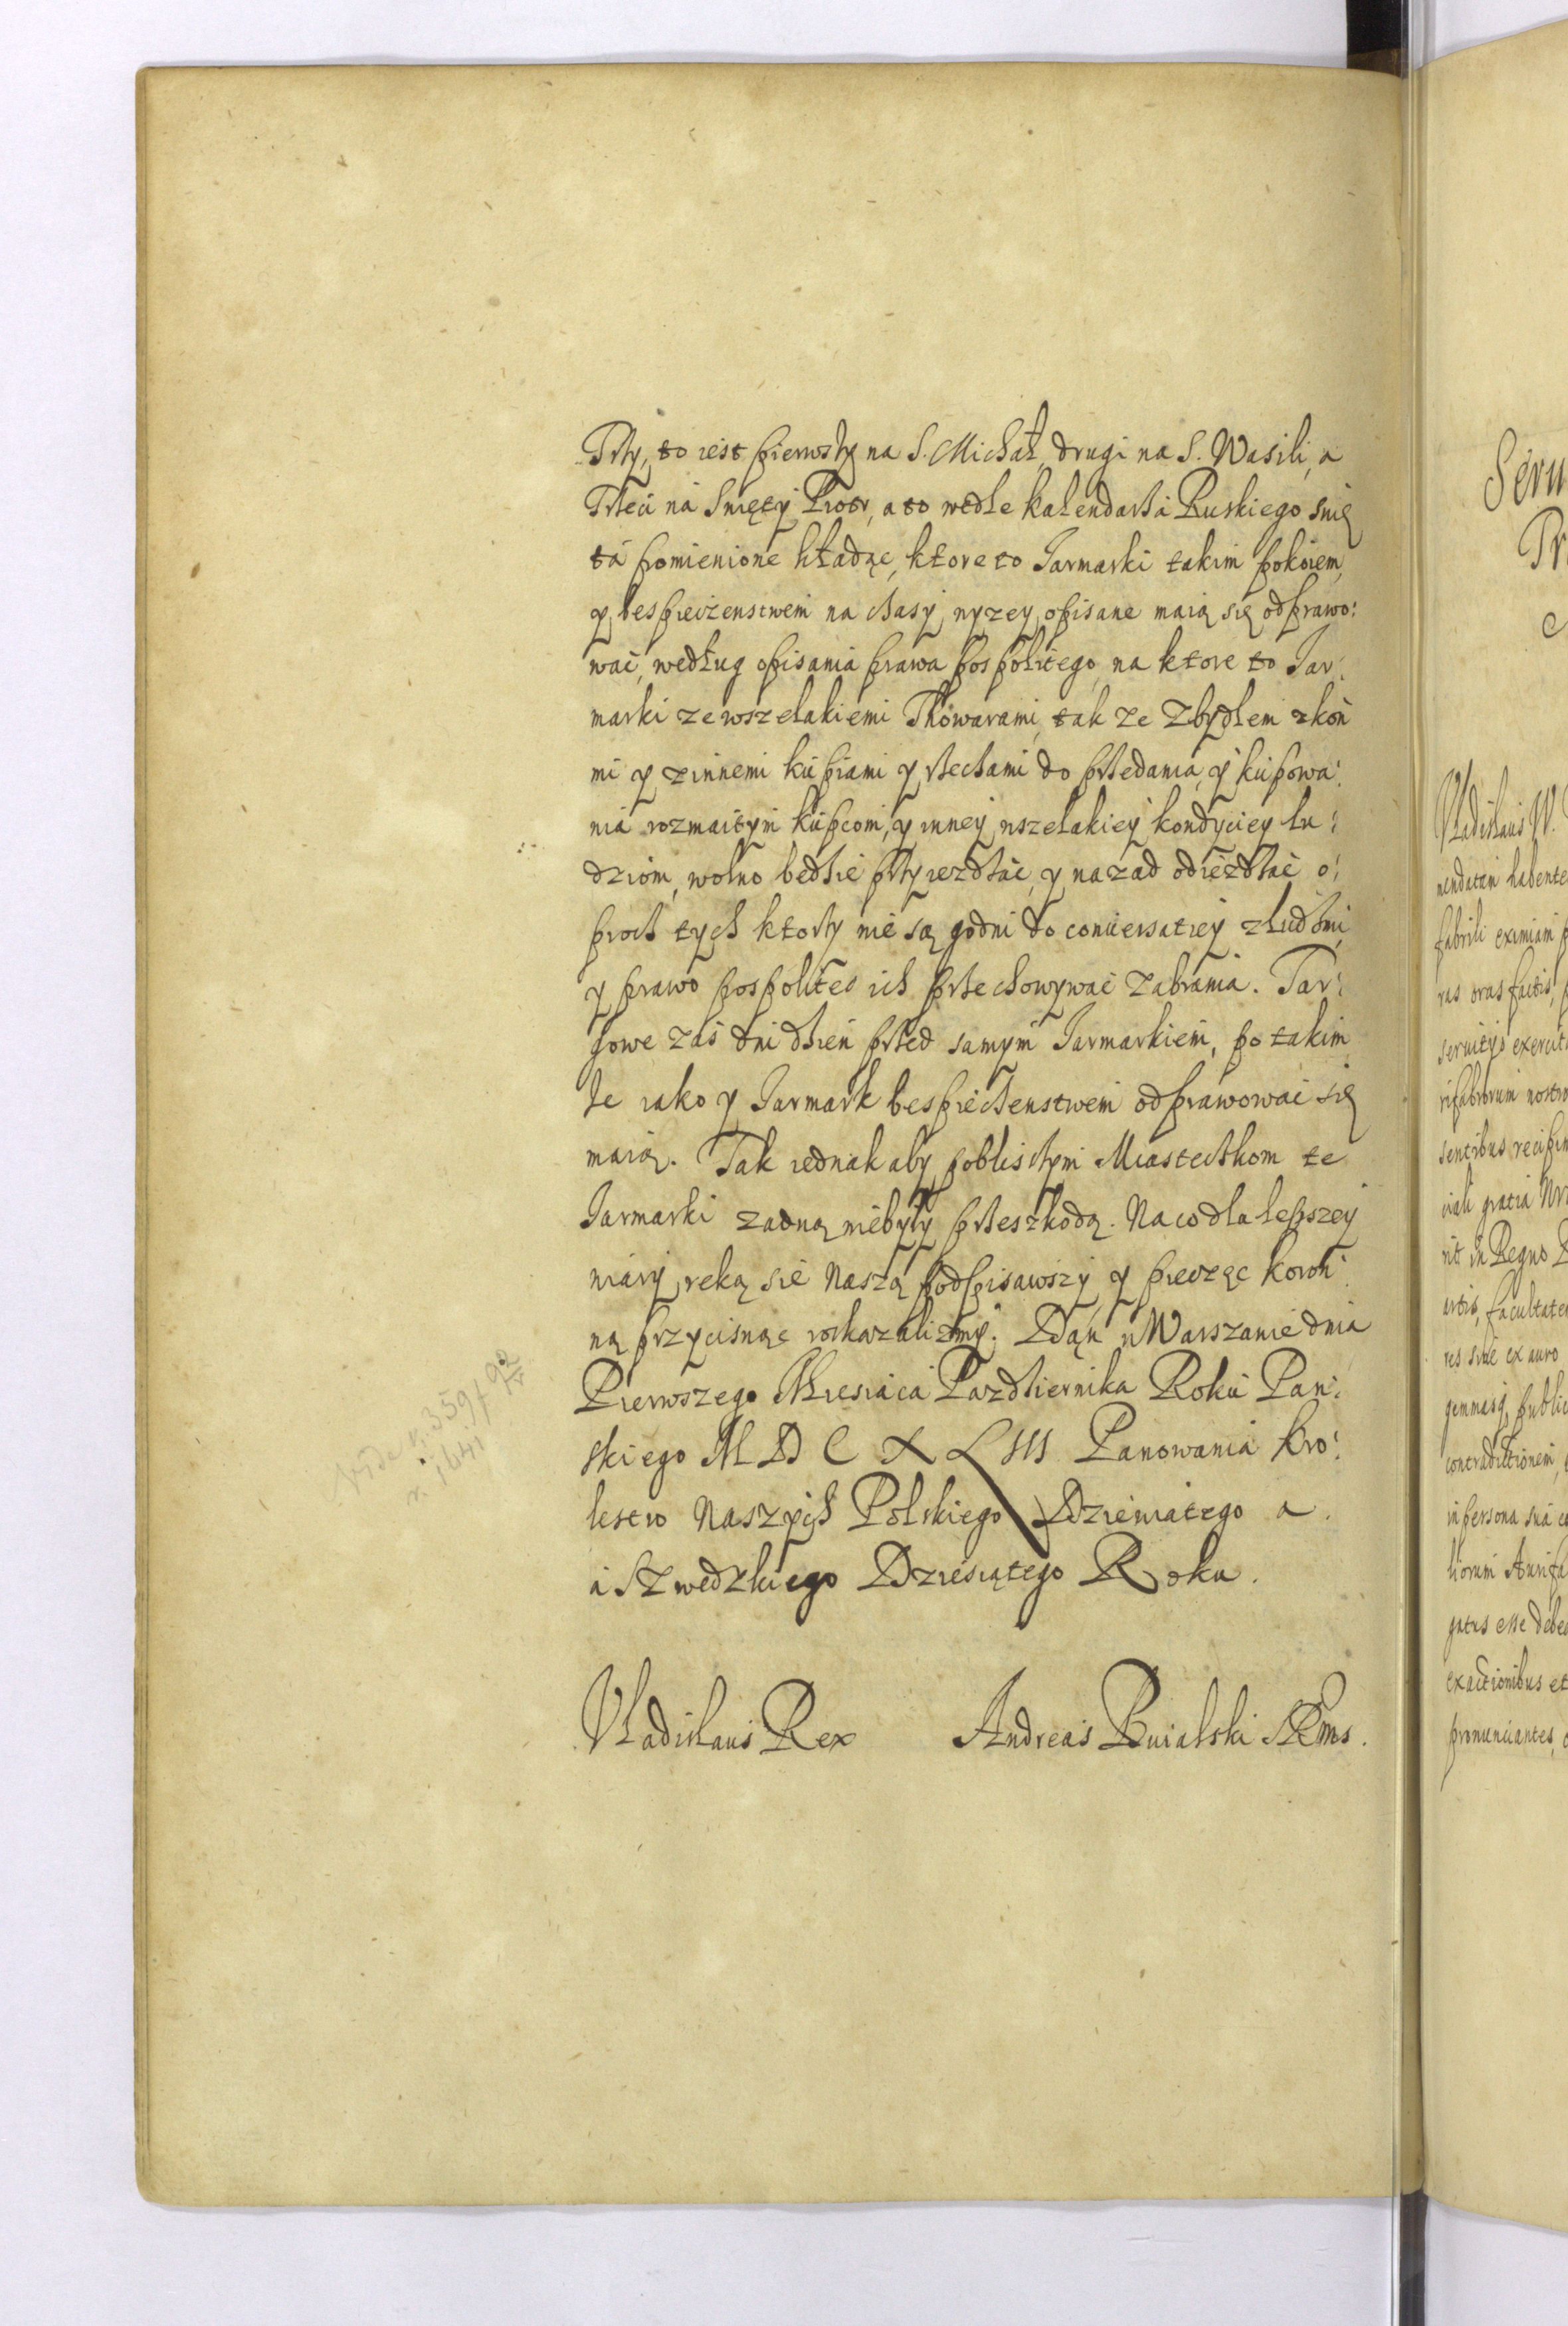 Trzy, to iest pierwszy na S. Michał, drugi na S. Wasili, a
Trzeci na Swięty Piotr, a to wedle kalendarza Ruskiego swię
ta pomienione kładąc, ktore to Jarmarki takim pokoiem,
y bespieczenstwem na czasy wyzey opisane maią się odprawo:
wać, według opisania prawa pospolitego, na ktore to Jar:
marki ze wszelakiemi Thowarami, tak ze z bydłem z koń
mi y z innemi kupiami y rzeczami do przedania, y kupowa:
nia rozmaitym kupcom, y inney wszelakiey kondyciey lu:
dziom, wolno będzie przyiezdzać, y nazad odiezdzać o:
procz tych ktorzy nie są godni do conuersatiey z ludzmi,
y prawo pospolites ich przechowywać zabrania. Tar:
gowe zaś dni dzień przed samym Jarmarkiem, po takim
że iako y Jarmark bespieczenstwem odprawować się
maią. Tak iednak aby pobliszym Miasteczkom te
Jarmarki zadną niebyły przeszkodą. Na co dla lepszey
wiary, ręką się Naszą podpisawszy, y pieczęc koron:
ną przycisnąc roskazalizmy. Dąn w Warszawie dnia
Pierwszego Miesiaca Pazdziernika Roku Pań:
skiego MDCXLIII Panowania Kro:
lestw Naszych Polskiego Dziewiatego a
a Szwedzkiego Dziesiątego Roku.
Vladislaus Rex Andreas Buialski SRMs.
Vide k. 359 f 92
n. 1641
Seru
Pr
Vladislaus IV.
mendatam habente
fabrili eximiam
ras oras factis,
seruitys exercit
rifabrorum nostro
sentibus recipim
ciali gratia Nra
rit in Regno
artis, facultatem
res siue ex auro
gemmasq, public
contradictionem,
in persona sua
liorum Aurifa
gatus esse debe
exactionibus et
pronunciantes,